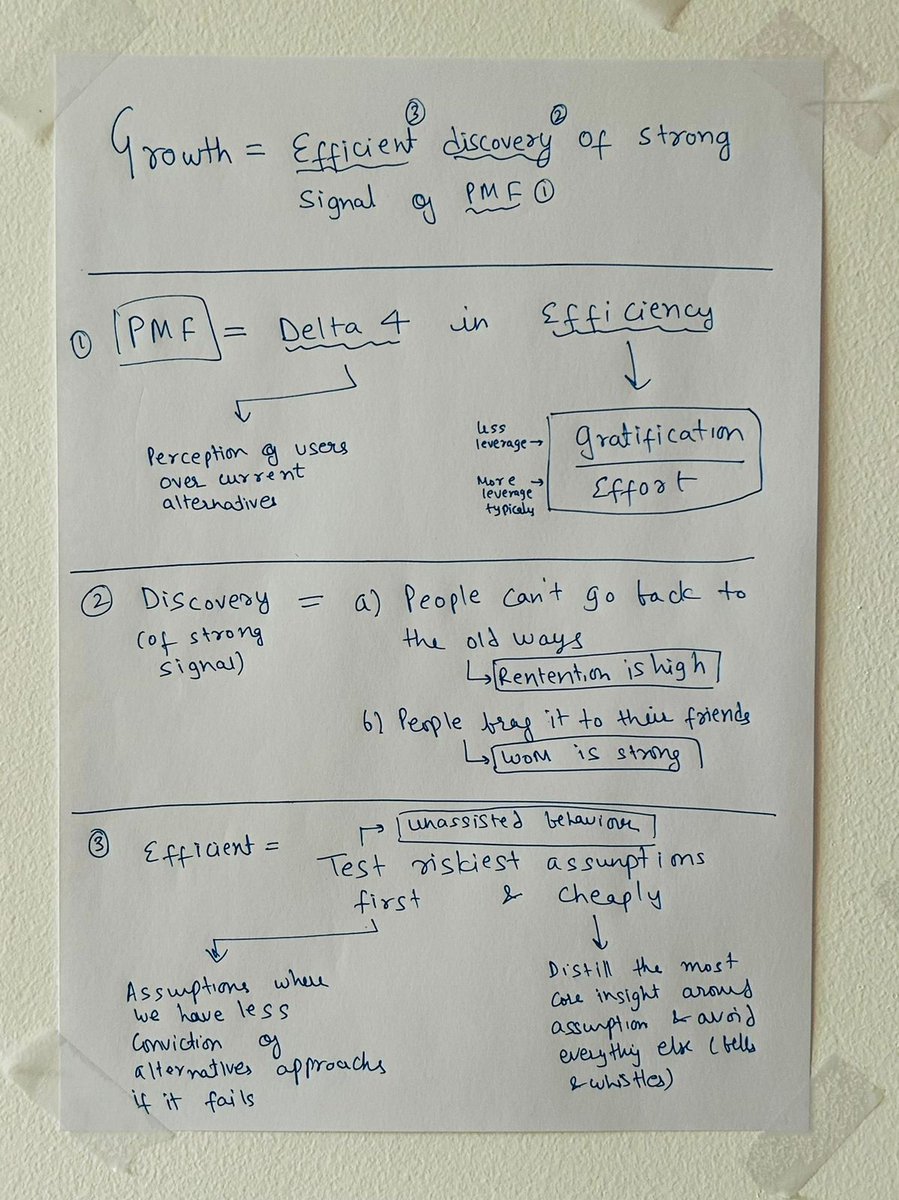 Growth = Efficient③ discovery② of strong
signal of PMF ①
① PMF = Delta 4 in Efficiency
Perception of users
over current
alternatives
less
leverage →
gratification
More →
leverage
typically
Effort
② Discovery =
(of strong
signal)
a) People can't go back to
the old ways
Rentention is high
b) People brag it to their friends
WOM is strong
③ Efficient =
unassisted behaviour
Test riskiest assumptions
first & cheaply
Assumptions where
we have less
conviction of
alternatives approachs
if it fails
Distill the most
core insight around
assumption & avoid
everything else (bells
& whistles)